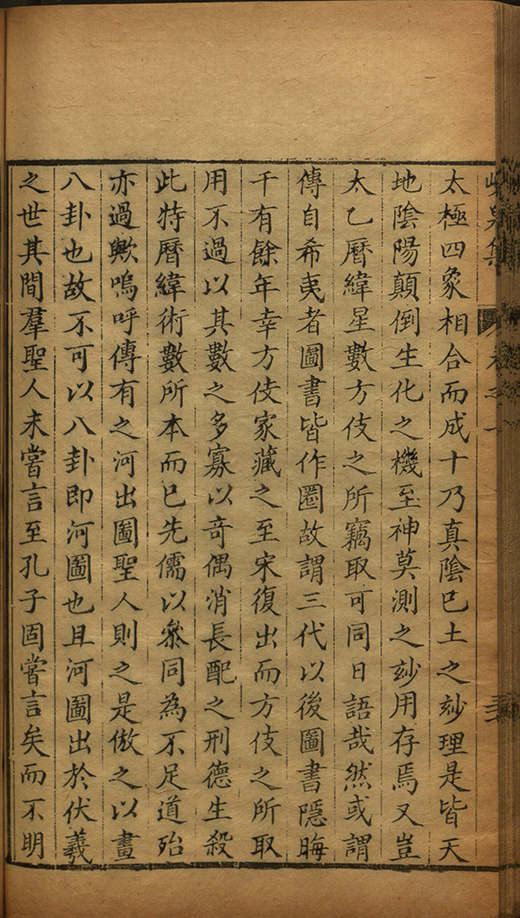 太極四象相合而成十乃真陰巳土之玅理是皆天
地陰陽顛倒生化之機至神莫測之玅用存焉又豈
太乙曆緯星數方伎之所竊取可同日語哉然或謂
傳自希夷者圖書皆作圈故謂三代以後圖書隱晦
千有餘年幸方伎家藏之至宋復出而方伎之所取
用不過以其數之多寡以奇偶消長配之刑德生殺
此特曆緯術數所本而已先儒以叅同為不足道殆
亦過歟嗚呼傳有之河出圖聖人則之是倣之以畫
八卦也故不可以八卦即河圖也且河圖出於伏羲
之世其間羣聖人未嘗言至孔子固嘗言矣而不明